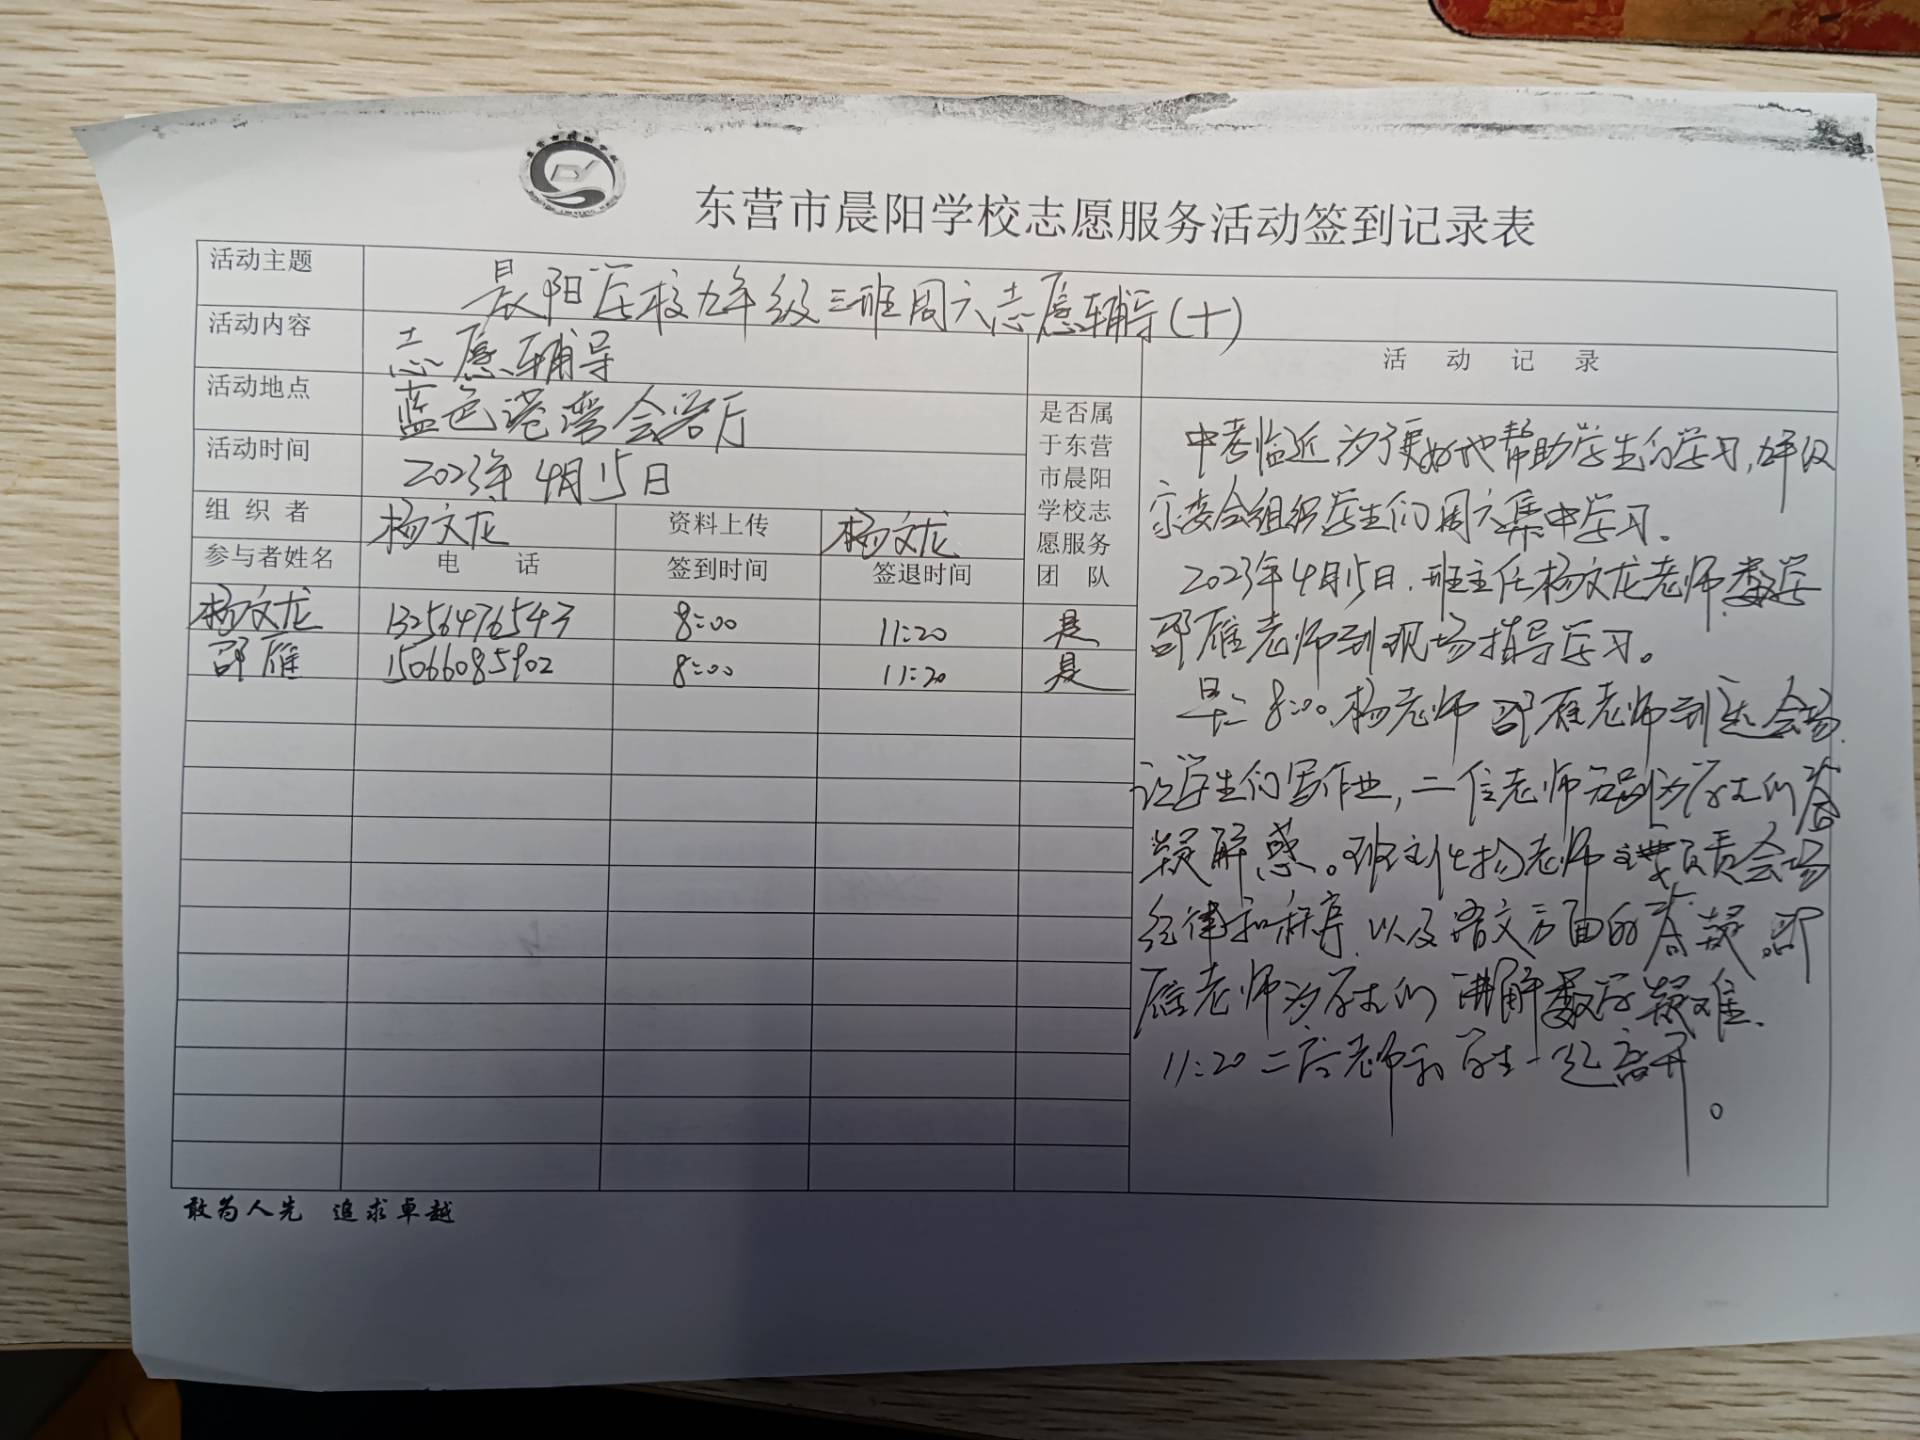 东营市晨阳学校志愿服务活动签到记录表
活动主题 晨阳学校九年级三班周六志愿辅导(十)
活动内容 志愿辅导
活动地点 蓝色港湾会客厅
活动时间 2023年4月15日
组织者 杨文龙 资料上传 杨文龙
参与者姓名 电话 签到时间 签退时间
是否属
于东营
市晨阳
学校志
愿服务
团队
杨文龙 13256476543 8:00 11:20 是
邵雁 15066085902 8:00 11:20 是
活动记录
中考临近为了更好地帮助学生们学习,九年级
家委会组织学生们周六集中学习。
2023年4月15日,班主任杨文龙老师、数学
邵雁老师到现场指导学习。
早上8:00,杨老师 邵雁老师到达会场,
让学生们写作业,二位老师分别为学生们答
疑解惑。班主任杨老师主要负责会场
纪律和秩序,以及语文方面的答疑。邵
雁老师为学生们讲解数学疑难、
11:20二位老师和学生一起离开。
敢为人先 追求卓越